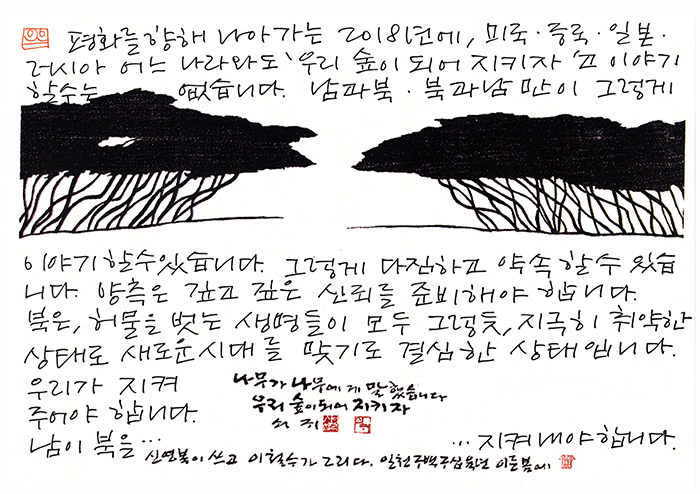 평화를 향해 나아가는 2018년에, 미국·중국·일본·
러시아 어느 나라와도 '우리 숲이 되어 지키자'고 이야기
할수는 없습니다. 남과북·북과남만이 그렇게
이야기 할수있습니다. 그렇게 다짐하고 약속 할 수 있습
니다. 양측은 깊고 깊은 신뢰를 준비해야 합니다.
북은, 허물을 벗는 생명들이 모두 그렇듯, 지극히 취약한
상태로 새로운시대를 맞기로 결심한 상태입니다.
우리가 지켜
주어야 합니다.
남이 북을…
나무가 나무에게 말했습니다
우리 숲이되어 지키자
쇠귀
…지켜내야합니다.
신영복이 쓰고 이철수가 그리다. 일천구백구십육년 이른봄에